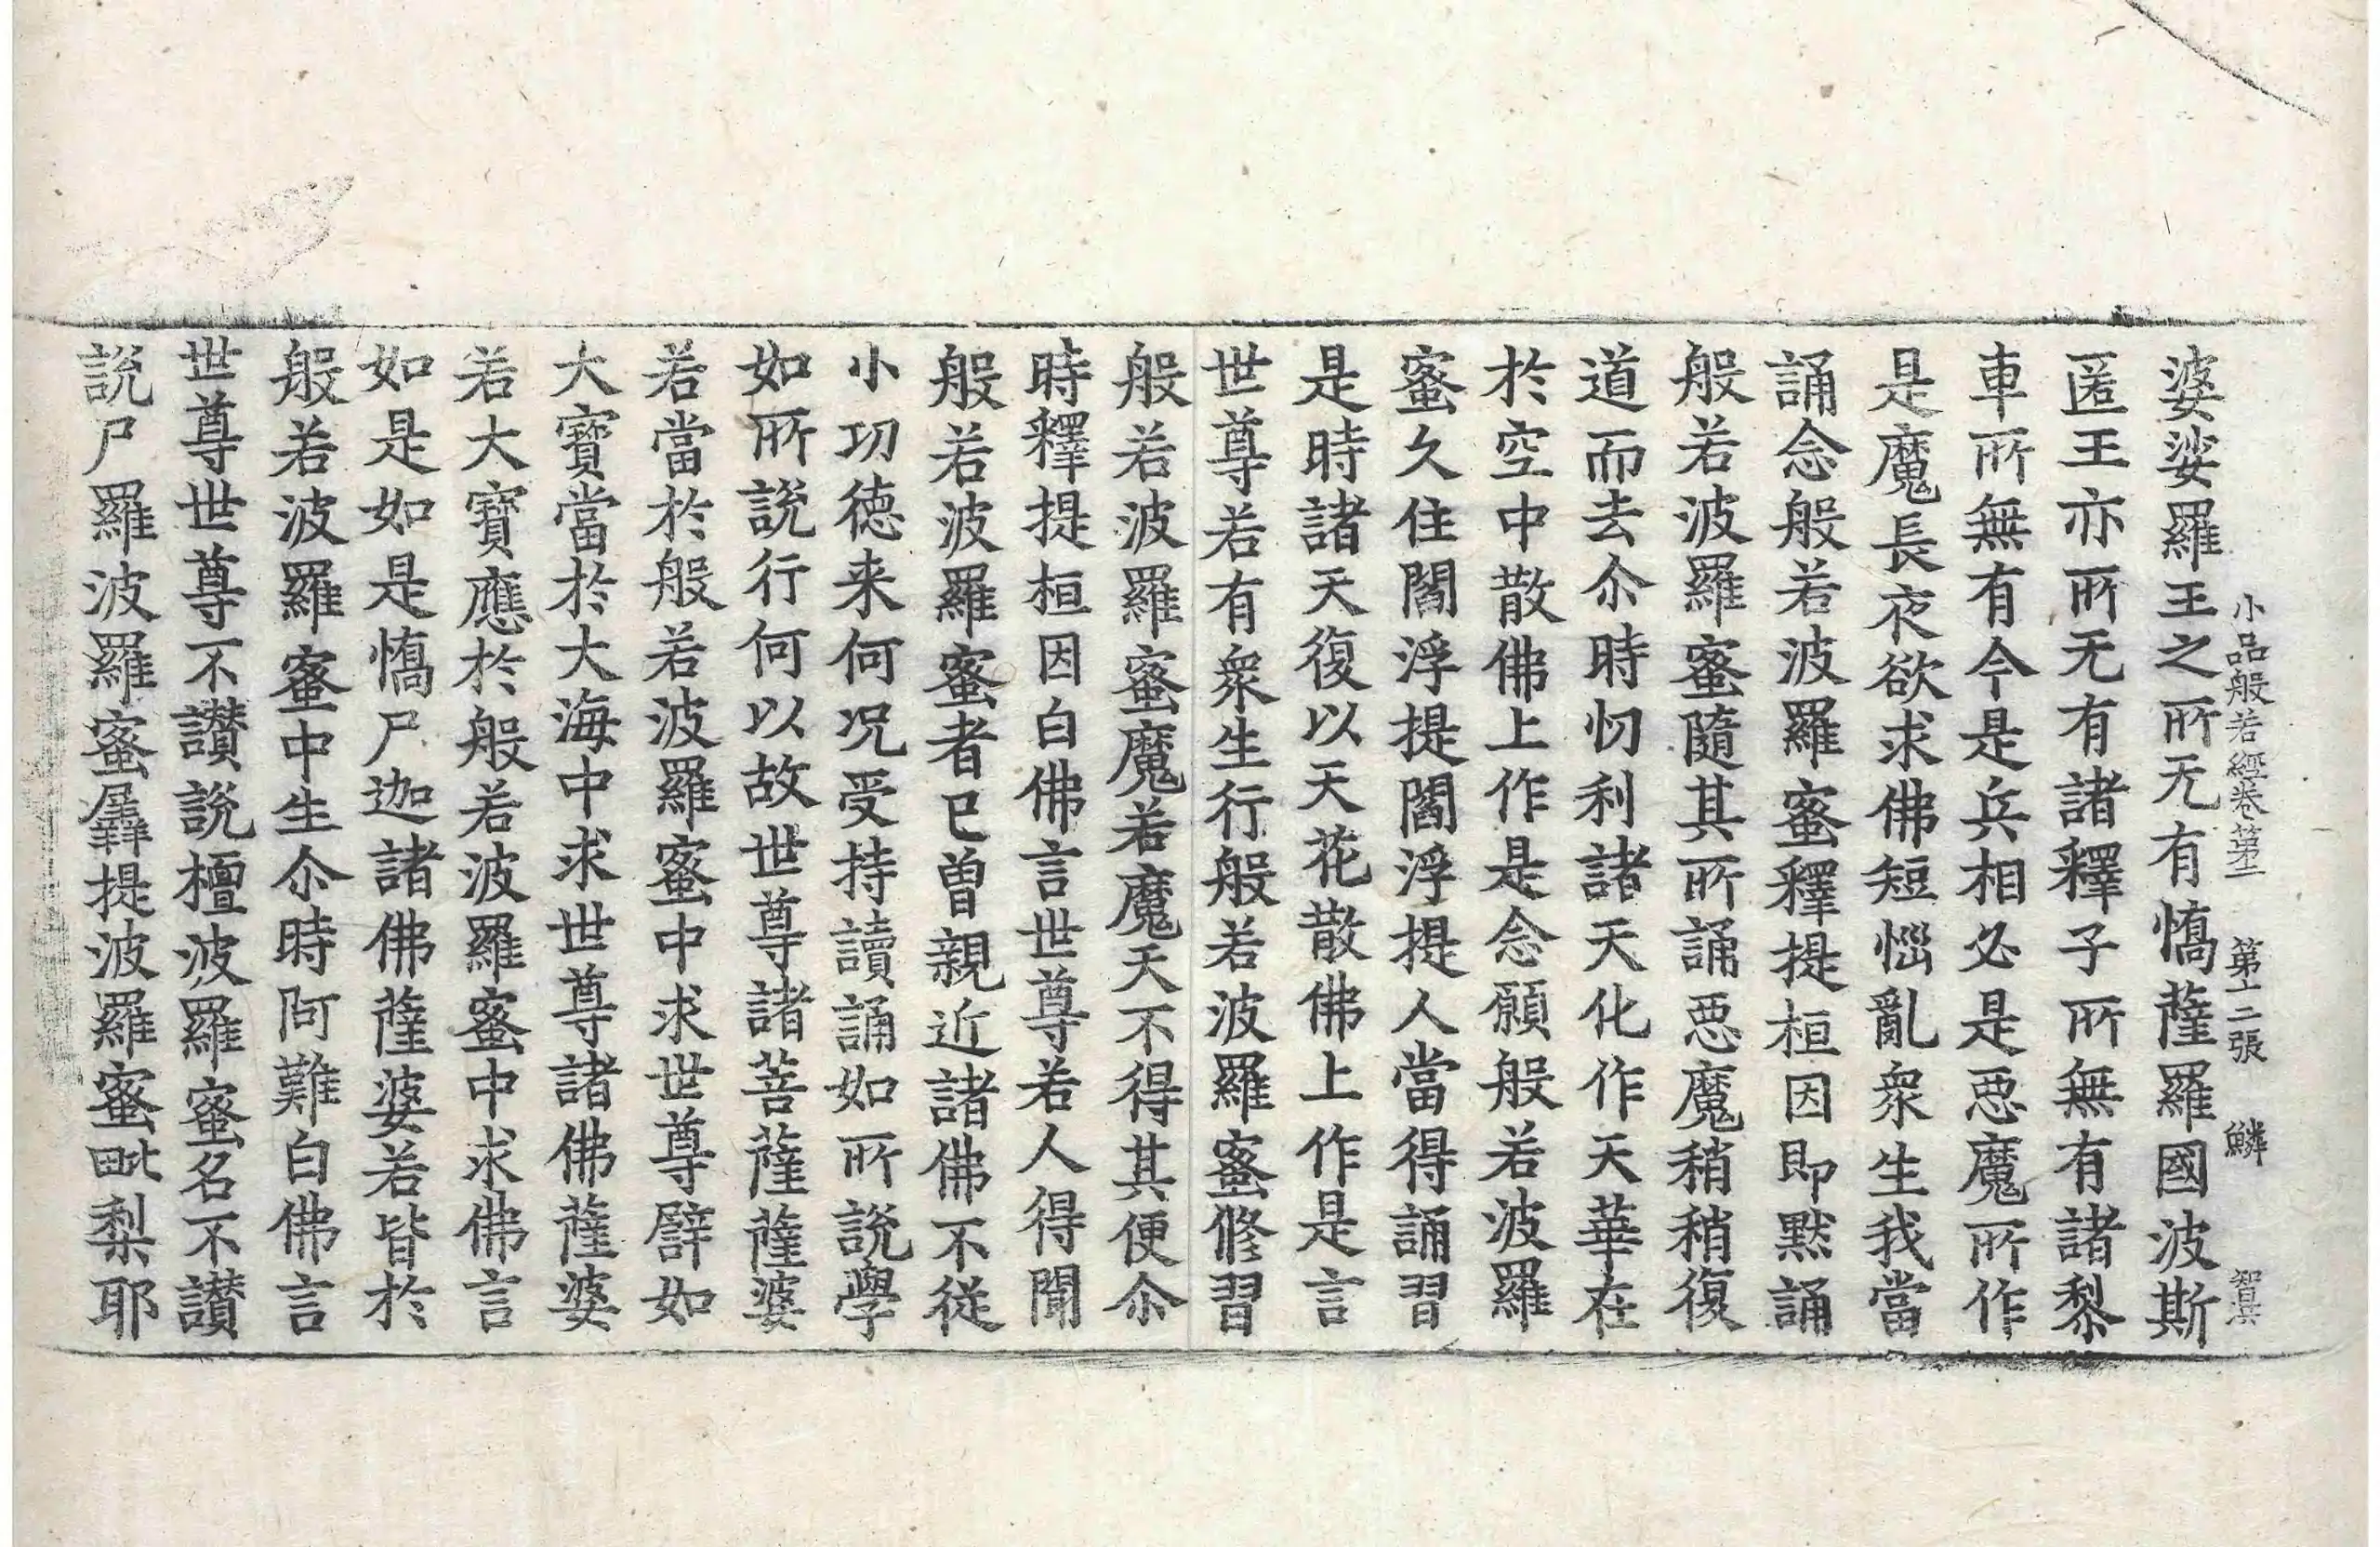 小品般若經卷第二 第十二張 鱗 智具
婆娑羅王之所无有憍薩羅國波斯
匿王亦所无有諸釋子所無有諸黎
車所無有今是兵相必是惡魔所作
是魔長夜欲求佛短惱亂衆生我當
誦念般若波羅蜜釋提桓因即黙誦
般若波羅蜜隨其所誦惡魔稍稍復
道而去尒時忉利諸天化作天華在
於空中散佛上作是念願般若波羅
蜜久住閻浮提閻浮提人當得誦習
是時諸天復以天花散佛上作是言
世尊若有衆生行般若波羅蜜修習
般若波羅蜜魔若魔天不得其便尒
時釋提桓因白佛言世尊若人得聞
般若波羅蜜者已曽親近諸佛不從
小功德来何况受持讀誦如所說學
如所說行何以故世尊諸菩薩薩婆
若當於般若波羅蜜中求世尊譬如
大寶當於大海中求世尊諸佛薩婆
若大寶應於般若波羅蜜中求佛言
如是如是憍尸迦諸佛薩婆若皆於
般若波羅蜜中生尒時阿難白佛言
世尊世尊不讃說檀波羅蜜名不讃
說尸羅波羅蜜羼提波羅蜜毗梨耶